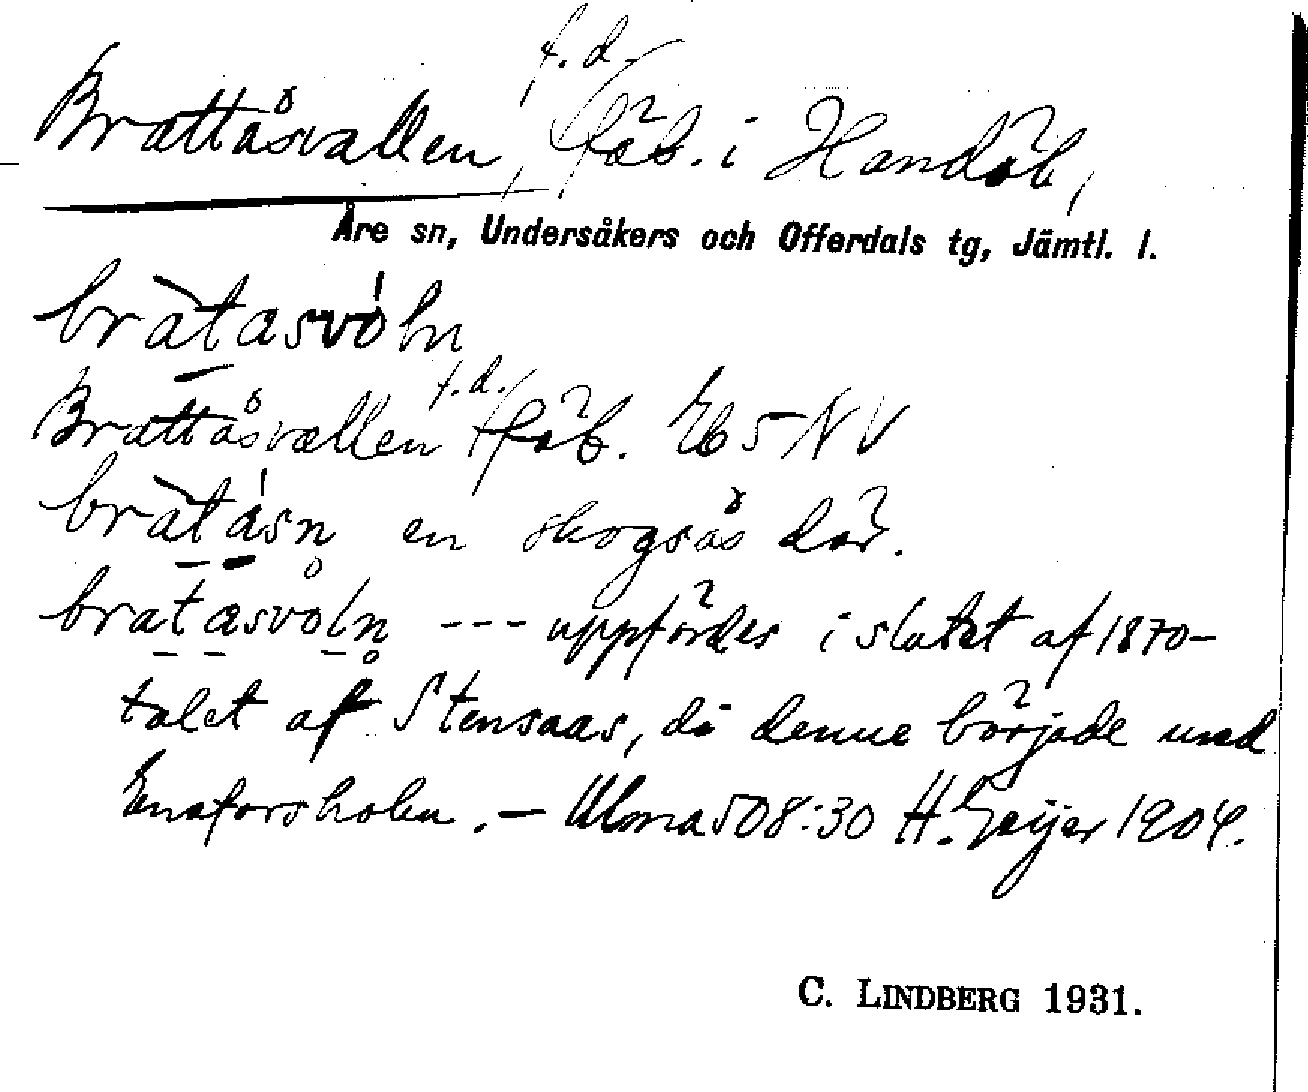 f. d.
Brattåsvallen, fäb. i Handöl,
Åre sn, Undersåkers och Offerdals tg, Jämtl. l.
bràtasvó̀ln
f.d.
Brattåsvallen fäb. Eb 5 NV
bràtásn en skogsås där.
bratasvoln --- uppfördes i slutet af 1870-
talet af Stensaas, då denne började med
Enaforsholm. – Ulma 508:30 H. Geijer 1904.
C. LINDBERG 1931.